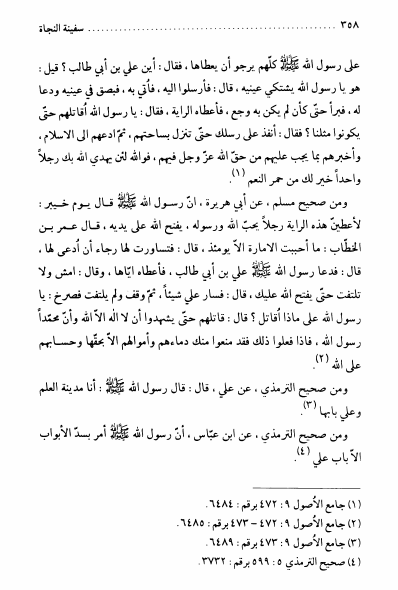 ٣٥٨ ........................................................ سفينة النجاة
على رسول الله ﷺ كلّهم يرجو أن يعطاها ، فقال : أين علي بن أبي طالب ؟ قيل :
هو يا رسول الله يشتكي عينيه ، قال : فأرسلوا اليه ، فأُتي به ، فبصق في عينيه ودعا
له ، فبرأ حتّى كأن لم يكن به وجع ، فأعطاه الراية ، فقال : يا رسول الله أُقاتلهم حتّى
يكونوا مثلنا ؟ فقال : أنفذ على رسلك حتّى تنزل بساحتهم ، ثمّ ادعهم الى الاسلام ،
وأخبرهم بما يجب عليهم من حقّ الله عزّ وجل فيهم ، فوالله لئن يهدي الله بك رجلاً
واحداً خير لك من حمر النعم (١).
ومن صحيح مسلم ، عن أبي هريرة ، انّ رسول الله ﷺ قال يوم خيبر :
لأعطينّ هذه الراية رجلاً يحبّ الله ورسوله ، يفتح الله على يديه ، قال عمر بن
الخطّاب : ما أحببت الامارة الاّ يومئذ ، قال : فتساورت لها رجاء أن أُدعى لها ،
قال : فدعا رسول الله ﷺ علي بن أبي طالب ، فأعطاه ايّاها ، وقال : امش ولا
تلتفت حتّى يفتح الله عليك ، قال : فسار علي شيئاً ، ثمّ وقف ولم يلتفت فصرخ : يا
رسول الله على ماذا أُقاتل ؟ قال : قاتلهم حتّى يشهدوا أن لا اله الاّ الله وأنّ محمّداً
رسول الله ، فاذا فعلوا ذلك فقد منعوا منك دماءهم وأموالهم الاّ بحقّها وحسابهم
على الله (٢).
ومن صحيح الترمذي ، عن علي ، قال : قال رسول الله ﷺ : أنا مدينة العلم
وعلي بابها (٣).
ومن صحيح الترمذي ، عن ابن عبّاس ، أنّ رسول الله ﷺ أمر بسدّ الأبواب
الاّ باب علي (٤).
(١) جامع الأُصول ٩ : ٤٧٢ برقم : ٦٤٨٤.
(٢) جامع الأُصول ٩ : ٤٧٢ - ٤٧٣ برقم : ٦٤٨٥.
(٣) جامع الأُصول ٩ : ٤٧٣ برقم : ٦٤٨٩.
(٤) صحيح الترمذي ٥ : ٥٩٩ برقم : ٣٧٣٢.